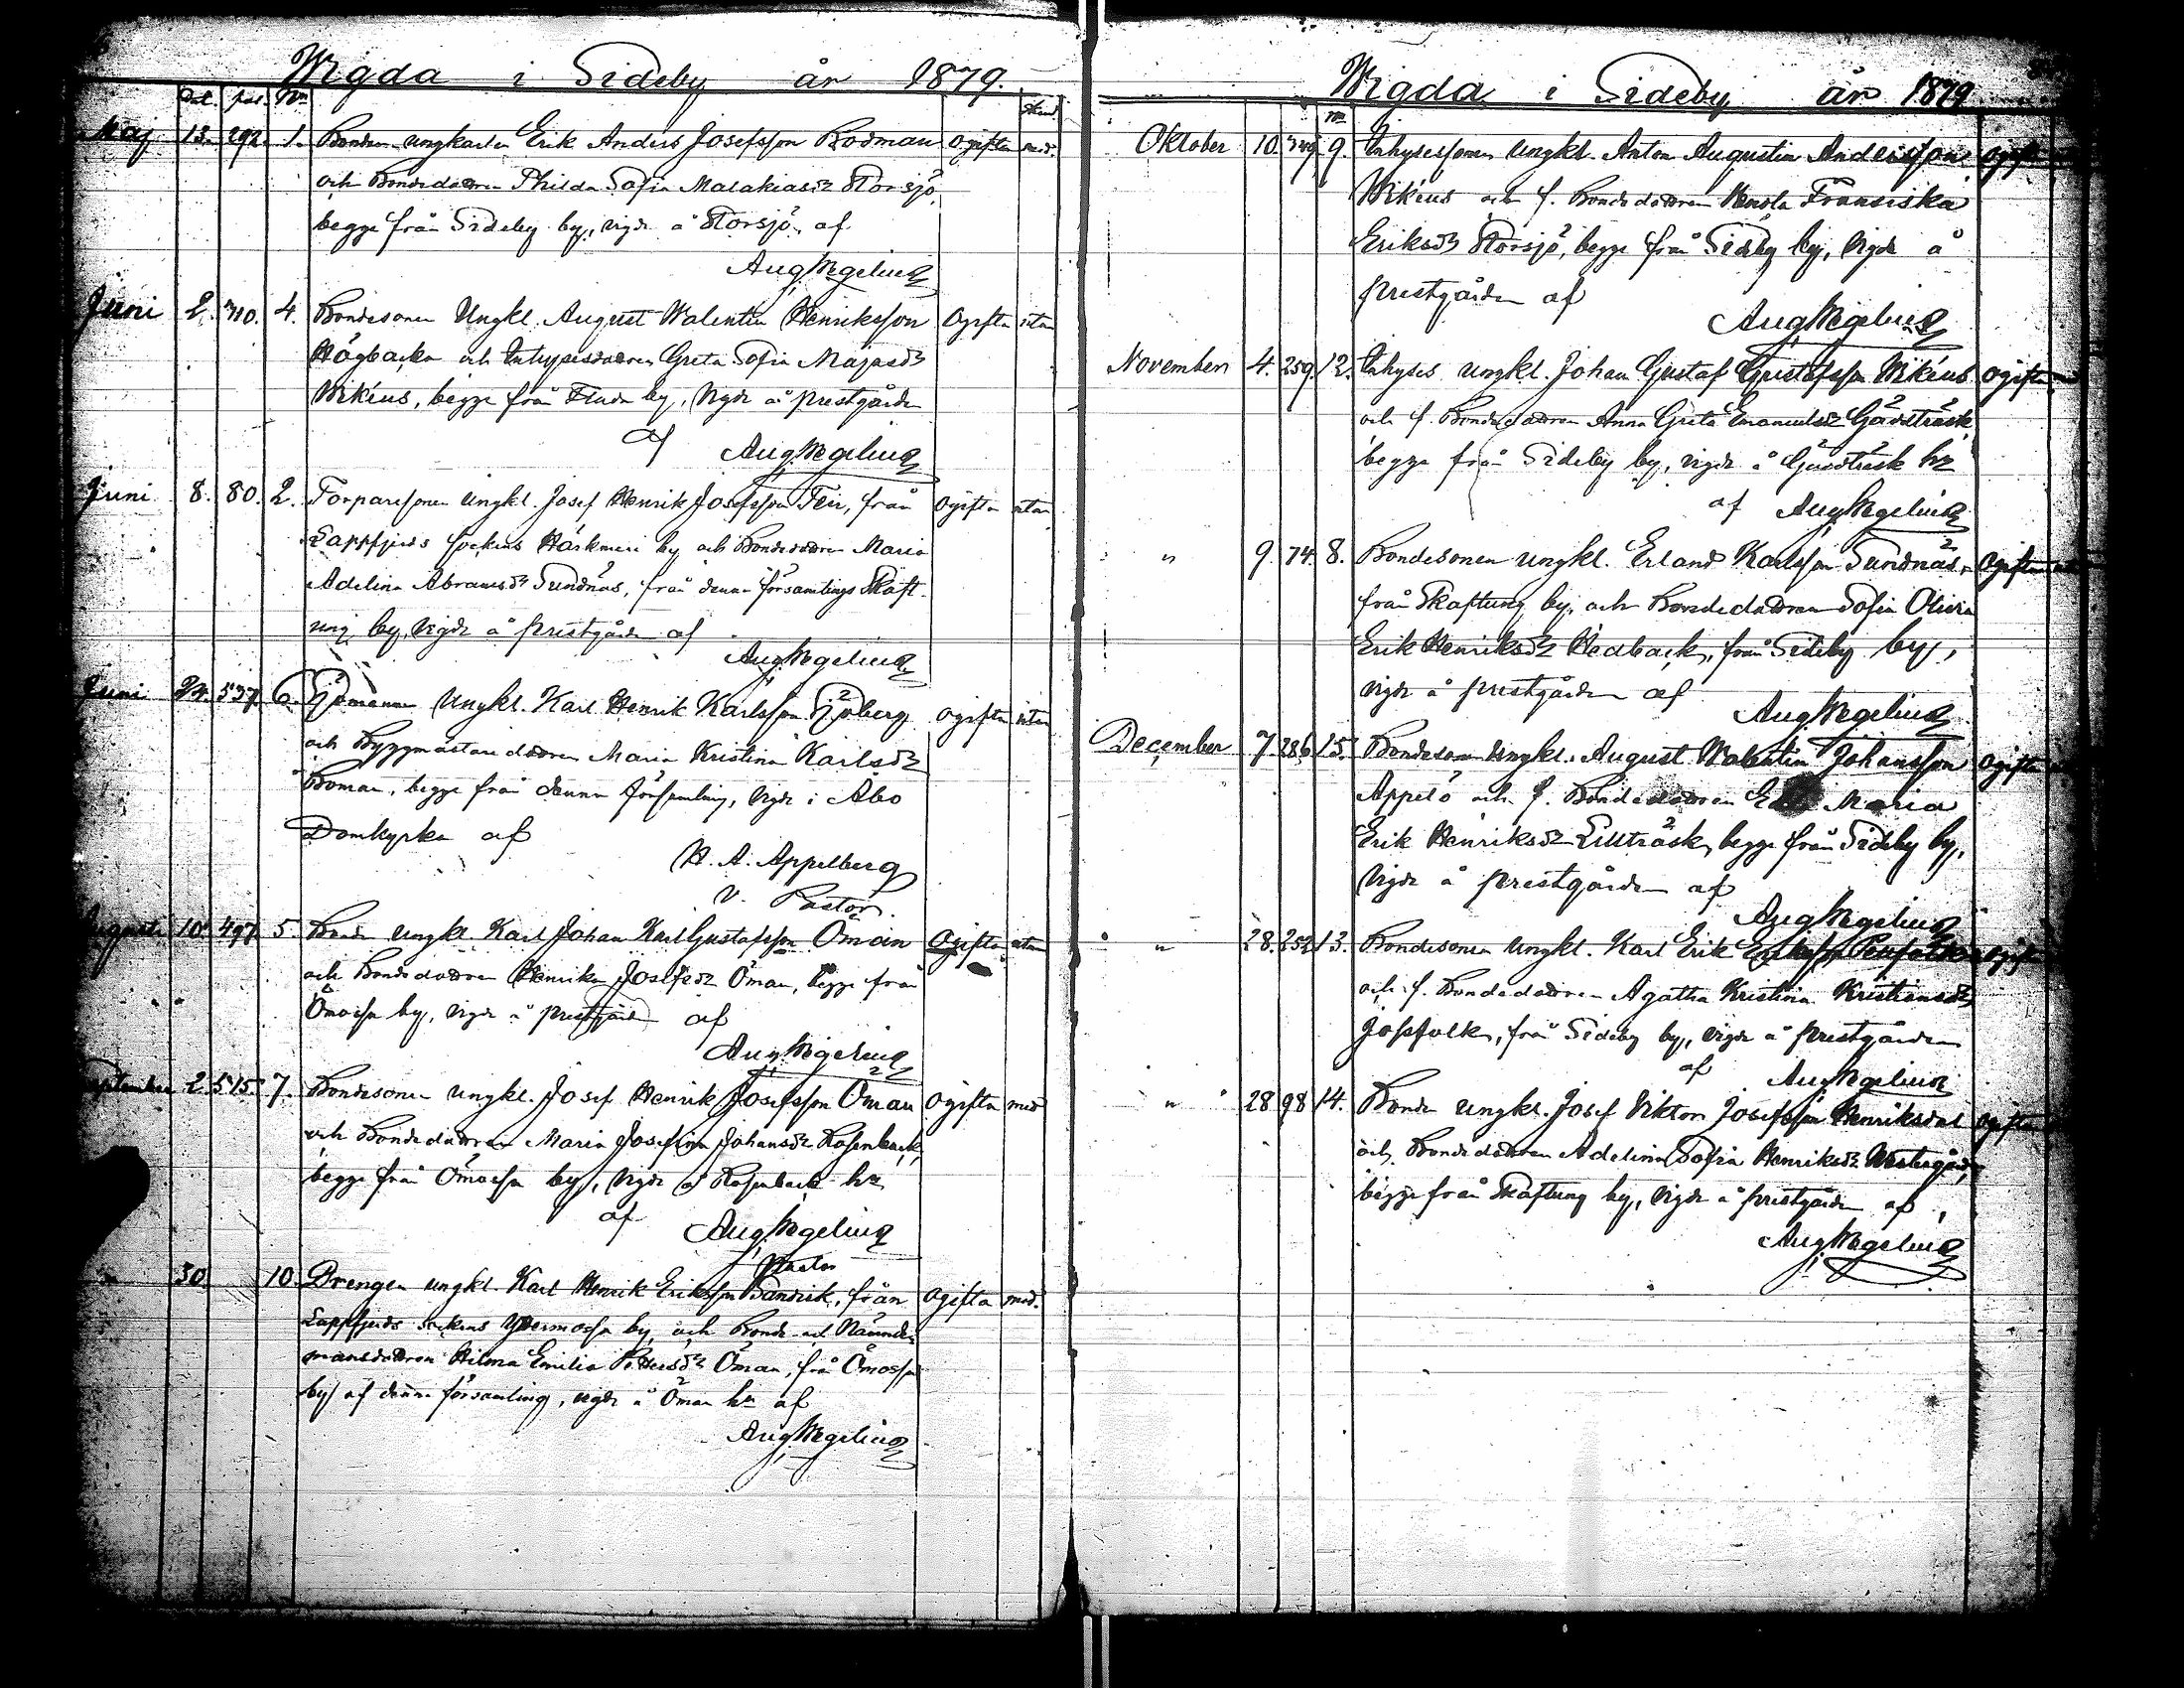 Wigda i Sideby år 1879.
Dat. pag. No
Maj 13. 292. 1. Bonden ungkarlen Erik Anders Josefsson Rodman ogifta med.
och Bondedottren Thilda Sofia Malakiasdr Storsjö,
begge från Sideby by, vigde å Storsjö, af
Aug Wegelius
Juni 2. 310. 4. Bondesonen Ungkl. August Walentin Henriksson Ogifta utan
Högbacka och Inhysesdottren Greta Sofia Majasdr
Wikéus, begge från Flada by, Vigde å prestgården
af Aug Wegelius
Juni 8. 80. 2. Torparesonen Ungkl. Josef Henrik Josefsson Teir, från Ogifta utan
Lappfjerds sockens Härkmeri by och Bondedottren Maria
Adelina Abramsdr Sundnäs, från denna församlings Skaft-
ung by, vigde å prestgården af
Aug Wegelius
Juni 24. 537. 6. Sjömannen Ungkl. Karl Henrik Karlsson Sjöberg ogifta utan
och Byggmästaredottren Maria Kristina Karlsdr
Boman, begge från denna församling, vigde i Åbo
Domkyrka af
H. A. Appelberg
v. Pastor.
Augusti 10. 497. 5. Bonden Ungkl. Karl Johan Karl Gustafsson Öman Ogifta utan
och Bondedottren Henrika Josefsdr Öman, begge från
Ömossa by, vigde å prestgården af
Aug Wegelius
September 2. 515. 7. Bondesonen ungkl. Josef Henrik Josefsson Öman Ogifta med
och Bondedottren Maria Josefina Johansdr Rosenback,
begge från Ömossa by, Vigde å Rosenback hn
af Aug Wegelius
Pastor
30. 10. Drengen ungkl. Karl Henrik Eriksson Sandvik, från Ogifta med.
Lappfjerds sockens Ydermossa by, och Bonde och Nämnde-
mansdottren Hilma Emilia Pettersdr Öman, från Ömossa
by af denna församling, vigde å Öman hn af
Aug Wegelius
Wigda i Sideby år 1879
No
Oktober 10. 349. 9. Inhysessonen Ungkl. Anton Augustin Andersson
Wikéus och f. Bondedottren Fransiska
Eriksdr Storsjö, begge från Sideby by, Vigde å
prestgården af
Aug Wegelius
November 4. 259. 12. Inhyses ungkl. Johan Gustaf Gustafsson Wikéus Ogifta
och f. Bondedottren Anna Greta Emanuelsdr Gårdträsk
begge från Sideby by, vigde å Gårdträsk hn
af Aug Wegelius
" 9. 74. 8. Bondesonen ungkl. Erland Karlsson Sundnäs, Ogifta
från Skaftung by, och Bondedottren Sofia Olivia
Erik Henriksdr Hedback, från Sideby by,
vigde å prestgården af
Aug Wegelius
December 7. 286. 15. Bondesonen Ungkl. August Walentin Johansson Ogifta
Appelö och f. Bondedottren Maria
Erik Henriksdr Lillträsk, begge från Sideby by,
Vigde å prestgården af
Aug Wegelius
" 28. 252. 13. Bondesonen Ungkl. Karl Erik
och f. Bondedottren Agatha Kristina Kristiansdr
Jossfolk, från Sideby by, vigde å prestgården
af Aug Wegelius
" 28 98 14. Bonden ungkl. Josef Viktor Josefsson Henriksdal Ogifta
och Bondedottren Adelina Sofia Henriksdr Westergård,
begge från Skaftung by, vigde å prestgården af
Aug Wegelius